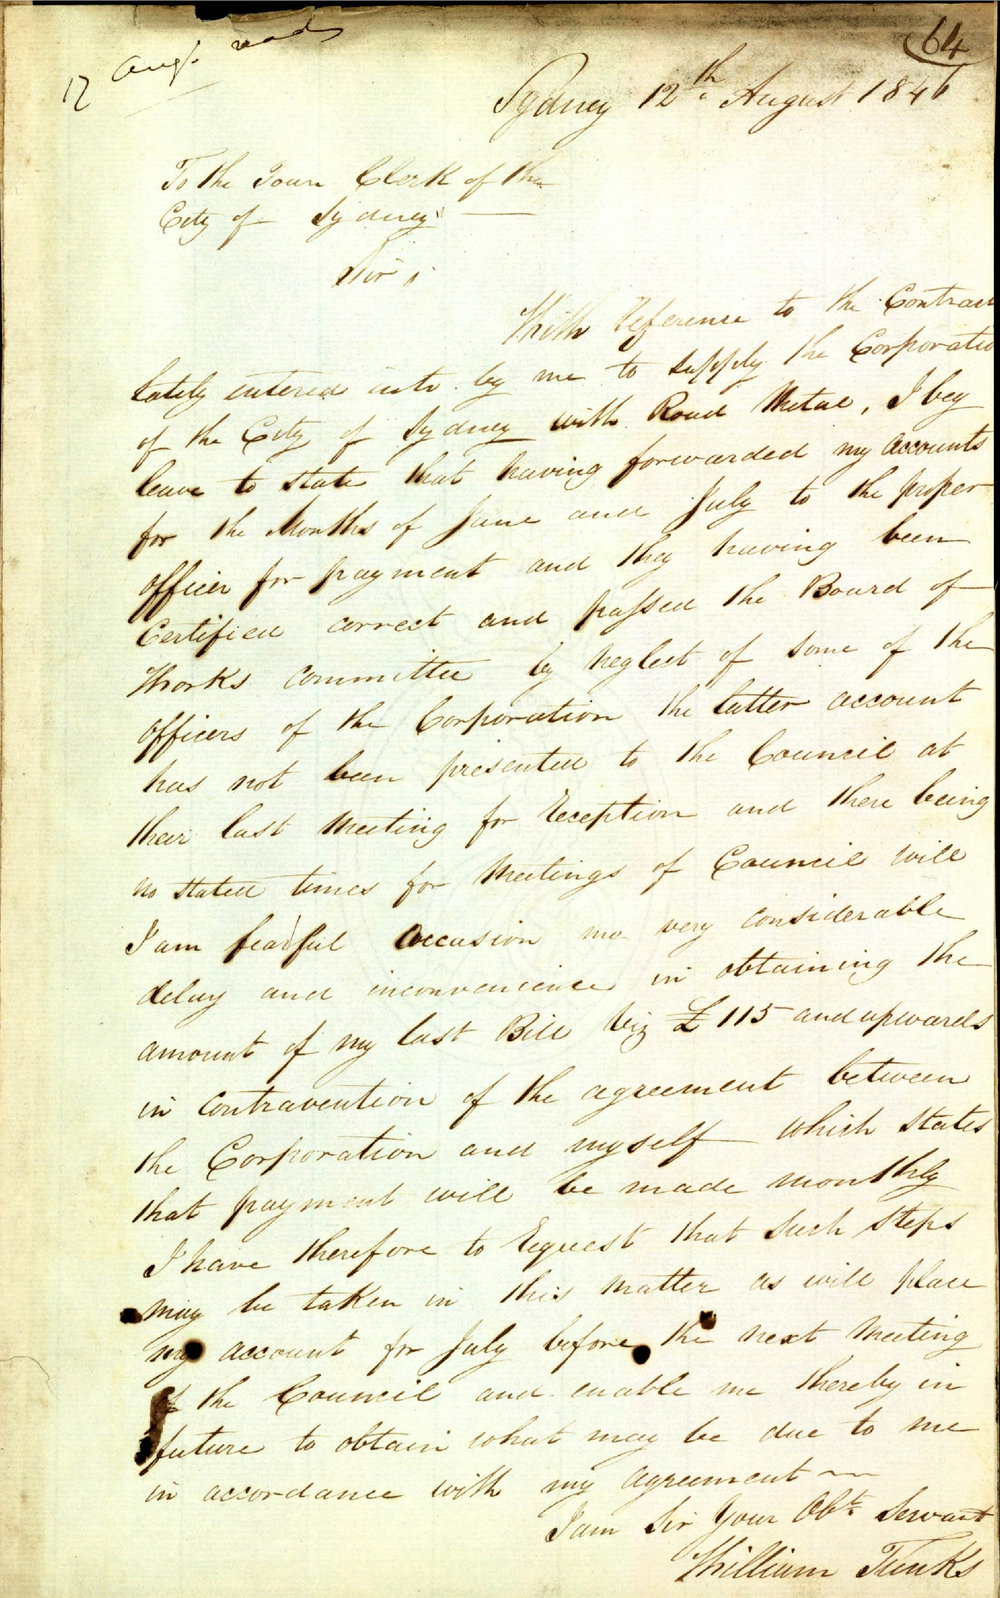 64
12 Augt. read
Sydney 12th August 1846
To the Town Clerk of the
City of Sydney
Sir,
With Reference to the Contract
lately entered into by me to supply the Corporatio
of the City of Sydney with Road Metal, I beg
leave to state that having forwarded my accounts
for the Months of June and July to the proper
officer for payment and they having been
Certified correct and passed the Board of
Works committee by neglect of some of the
officers of the Corporation the latter account
has not been presented to the Council at
their last Meeting for Reception and there being
no stated times for Meetings of Council will
I am fearful occasion me very considerable
delay and inconvenience in obtaining the
amount of my last Bill Viz £115 and upwards
in contravention of the agreement between
the Corporation and myself which states
that payment will be made monthly
I have therefore to Request that such steps
may be taken in this matter as will place
my account for July before the next Meeting
of the Council and enable me thereby in
future to obtain what may be due to me
in accordance with my agreement
I am Sir Your Obt. Servant
William Tunks